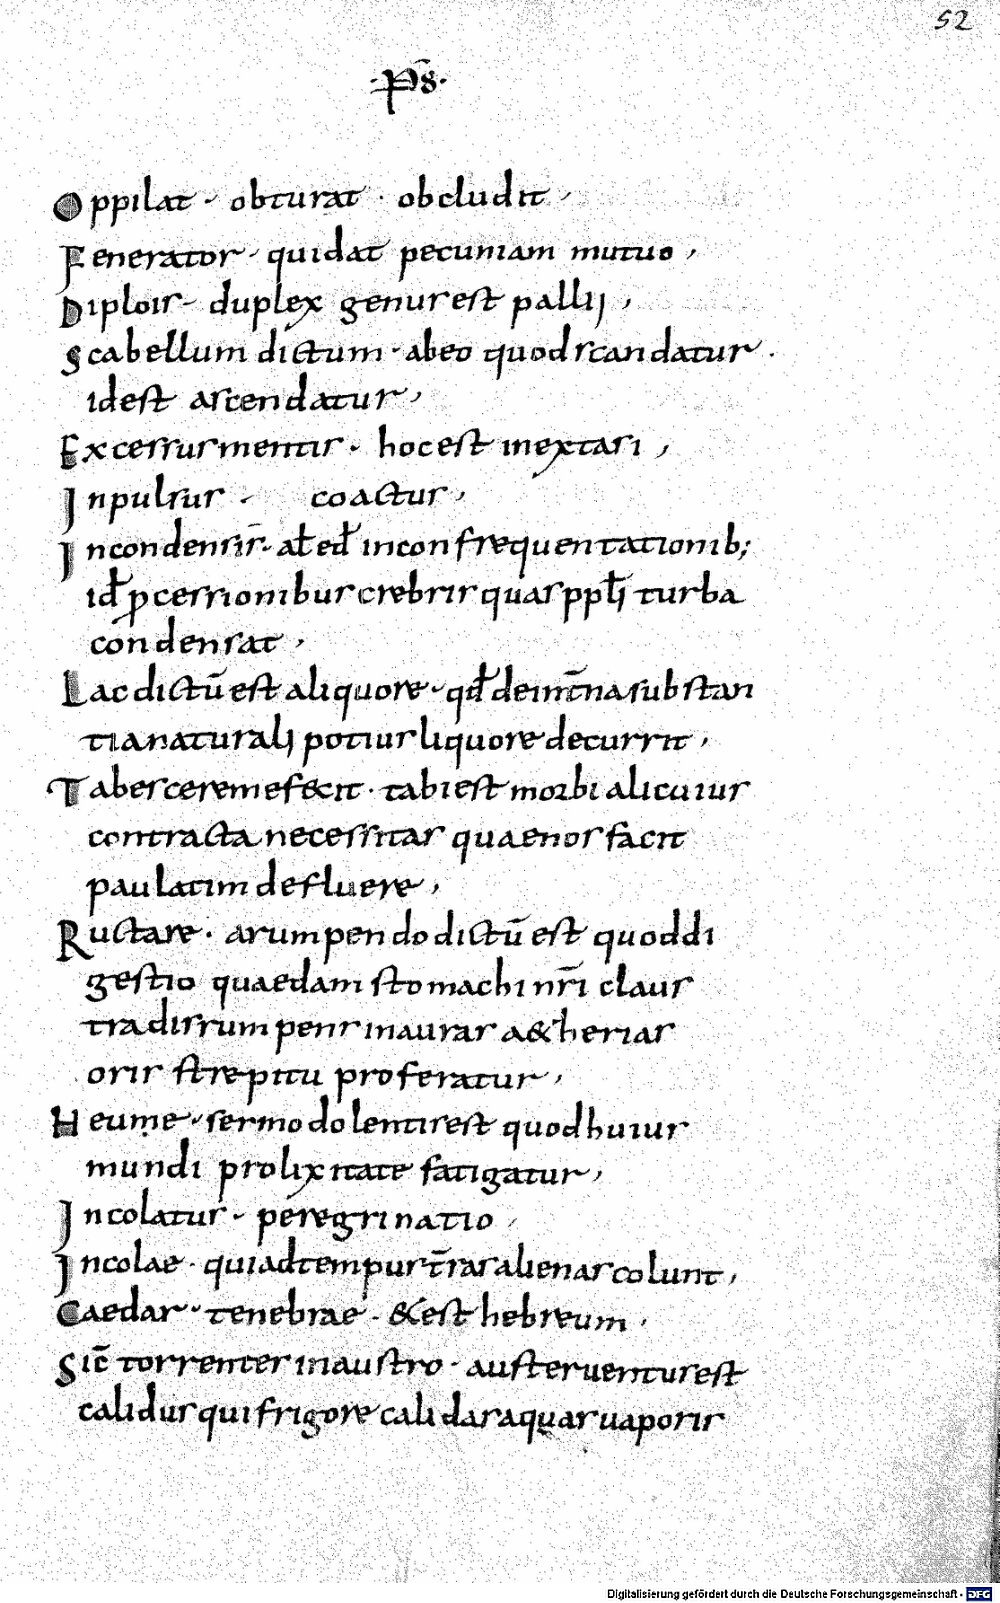 52
·P̄s·
Oppilat · obturat · obcludit ·
Fenerator · qui dat pecuniam mutuo,
Diplois · duplex genus est pallij,
Scabellum dictum · ab eo quod scandatur ·
id est ascendatur,
Excessus mentis · hoc est in extasi,
Inpulsus · coactus,
In condensis · aƚ eđ in confrequentationib;
iđ p̱cessionibus crebris quas ppƚi turba
condensat,
Lac dictū est a liquore · qđ de int̄na substan
tia naturali potius liquore decurrit,
Tabescere me fecit · tabi est morbi alicuius
contracta necessitas quae nos facit
paulatim defluere,
Ructare · a rumpendo dictū est quod di
gestio quaedam stomachi nr̄i claus
tradis rumpens in auras a&herias
oris strepitu proferatur,
Heu me · sermo dolentis est quod huius
mundi prolixitate fatigatur,
Incolatus · peregrinatio
Incolae · qui ad tempus t̄ras alienas colunt,
Caedar · tenebrae · & est hebreum,
Sic̄ torrentes in austro · auster ventus est
calidus qui frigore calidas aquas uaporis
Digitalisierung gefördert durch die Deutsche Forschungsgemeinschaft - DFG